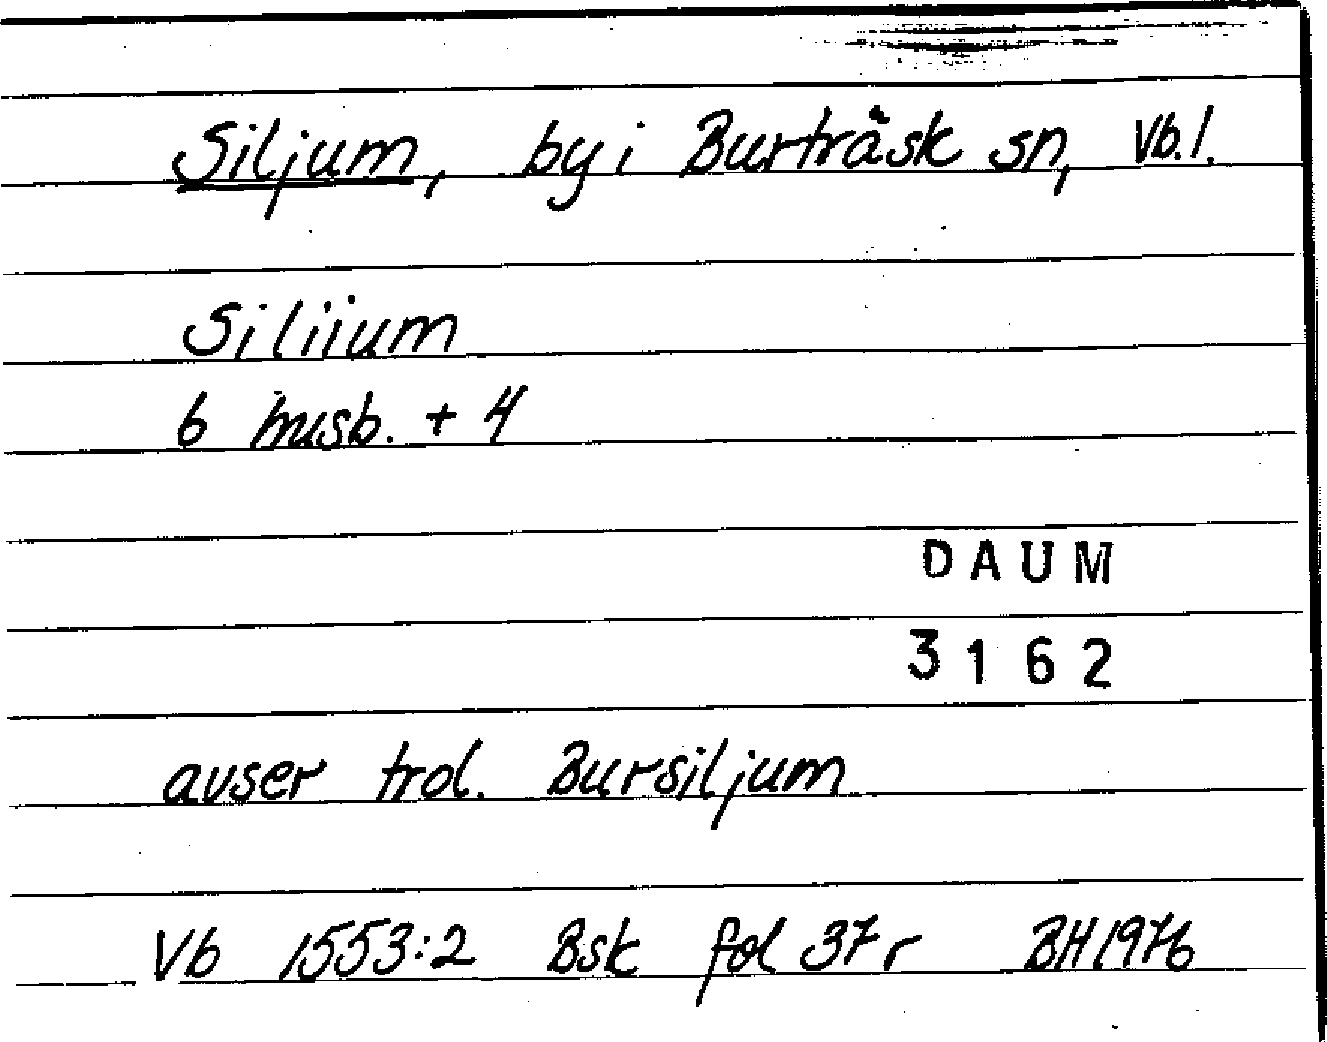 Siljum, by i Burträsk sn, Vb.l.
Siliium
6 husb. + 4
DAUM
3162
avser trol. Bursiljum
Vb 1553:2 Bsk fol 37r BH1976